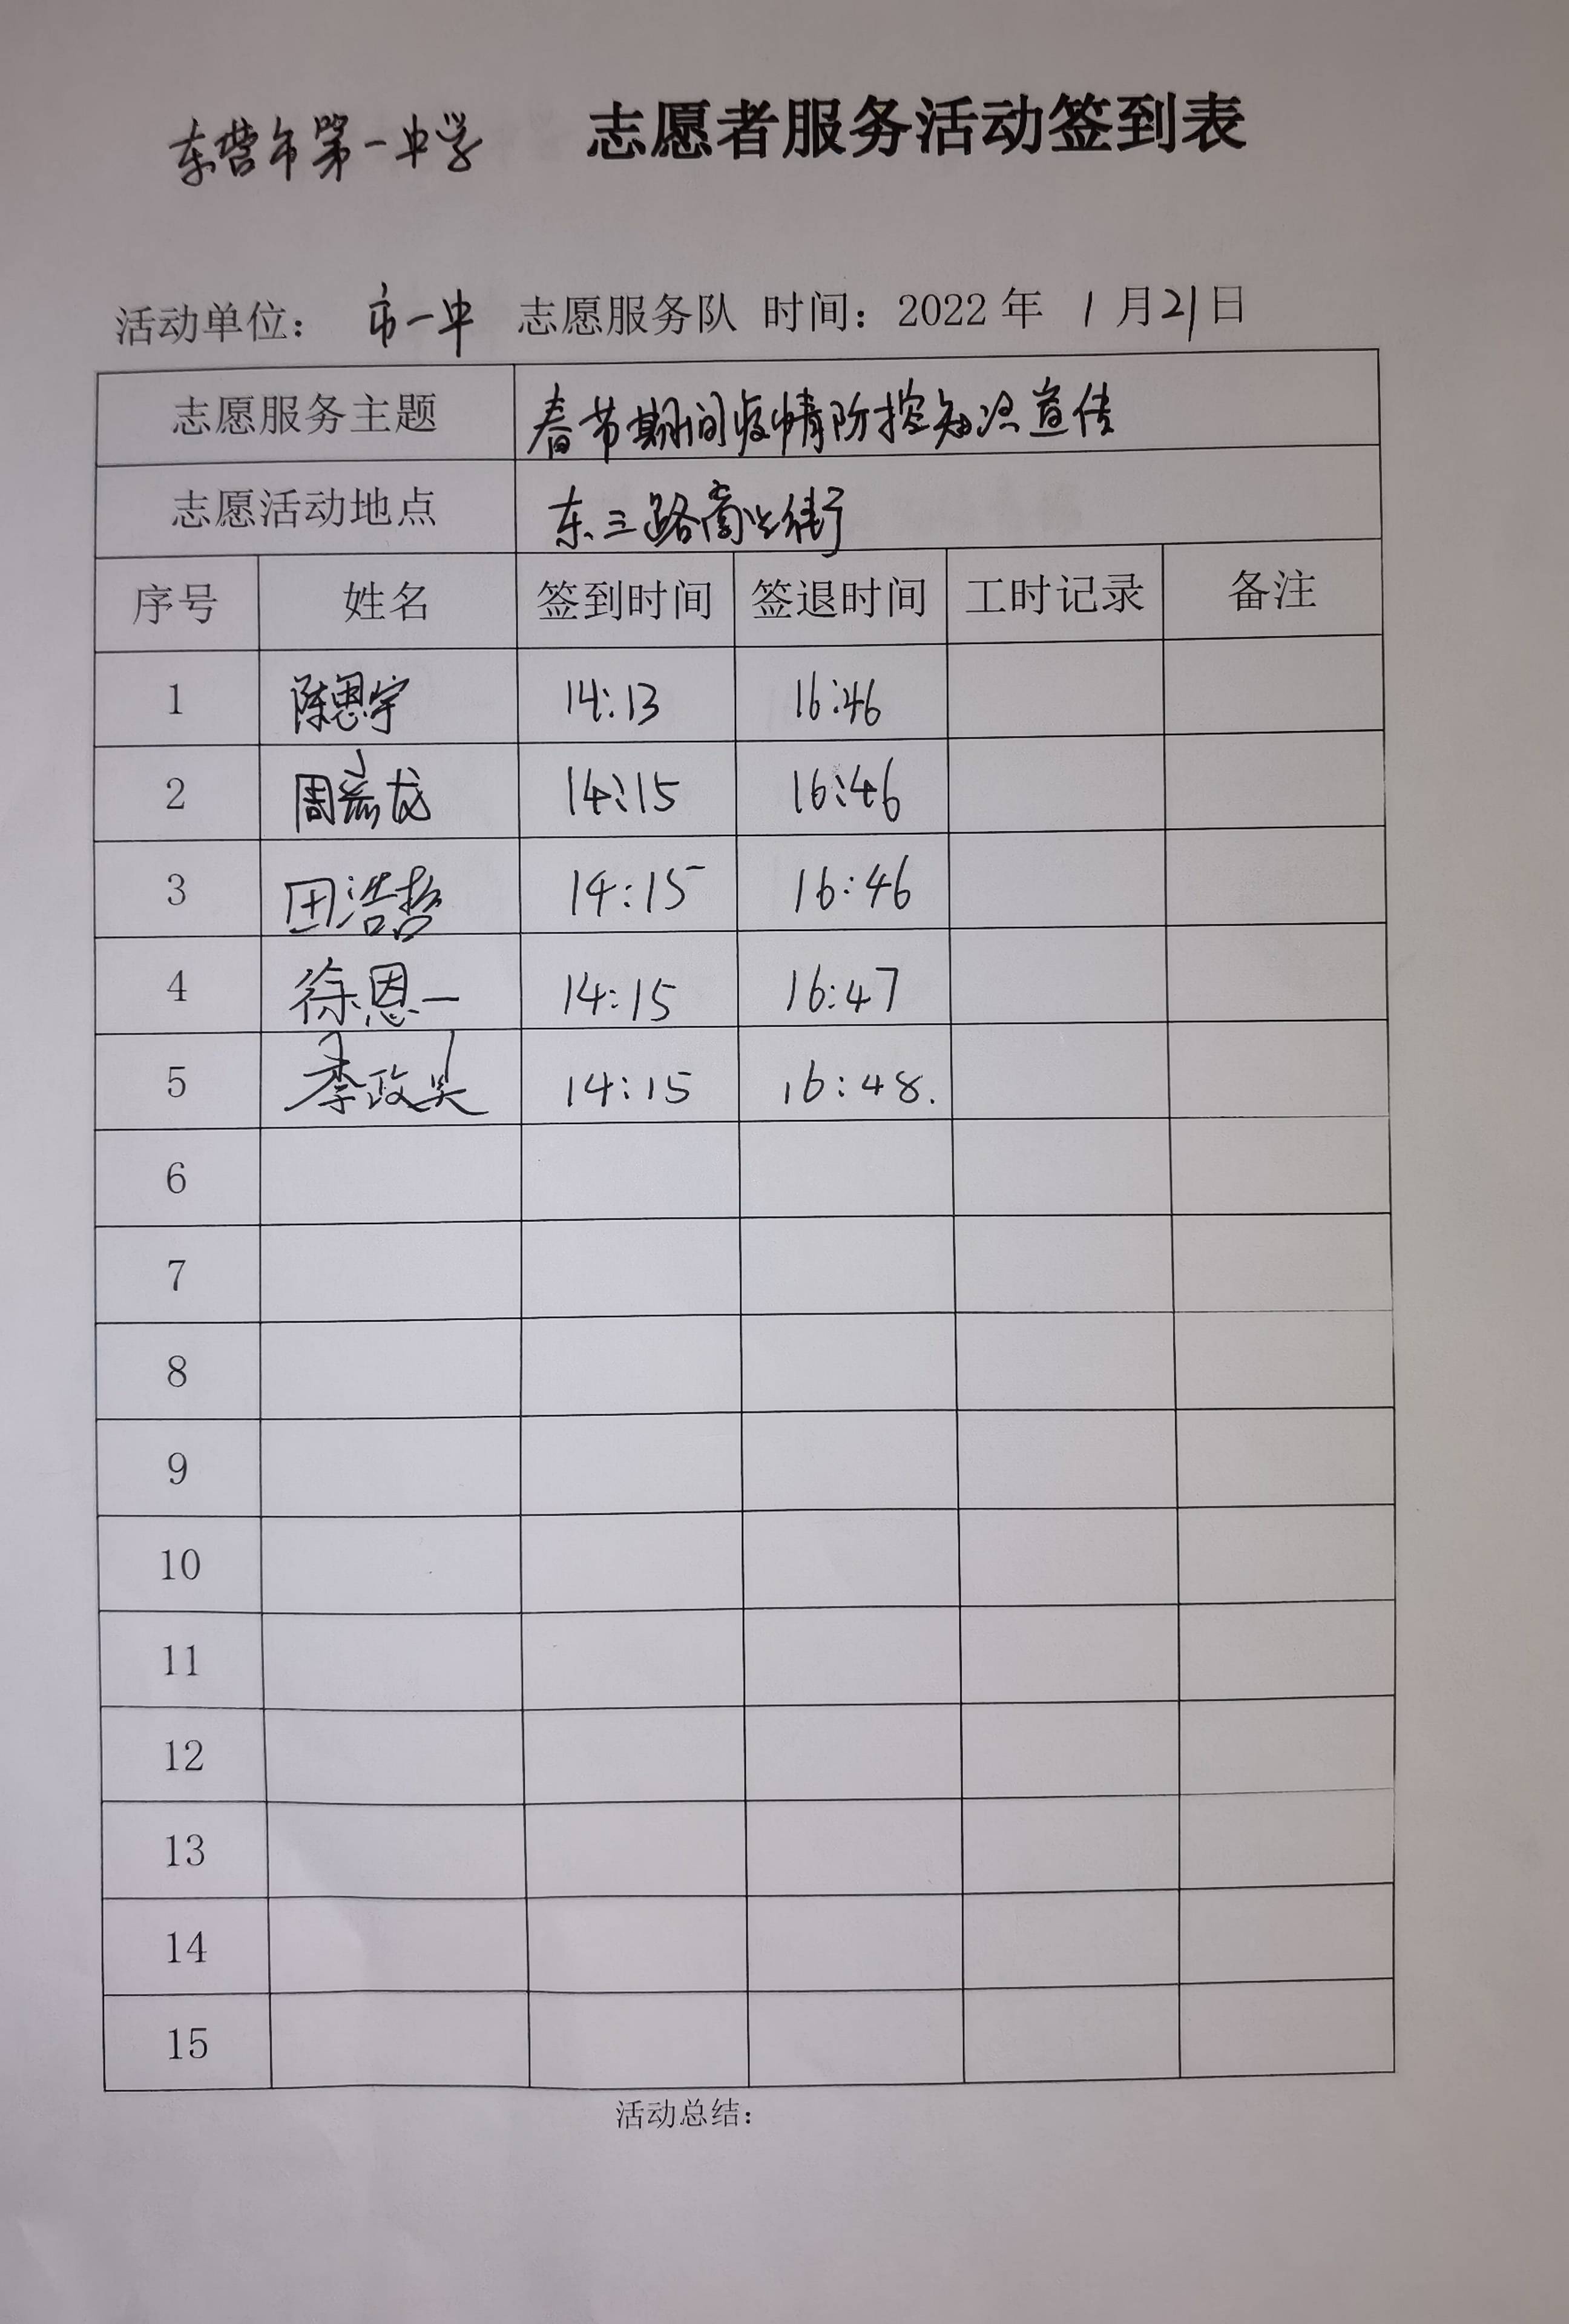 东营市第一中学 志愿者服务活动签到表
活动单位： 市一中 志愿服务队 时间：2022年 1月21日
志愿服务主题 春节期间疫情防控知识宣传
志愿活动地点 东三路商业街
序号 姓名 签到时间 签退时间 工时记录 备注
1 陈思宇 14:13 16:46
2 周宏龙 14:15 16:46
3 田浩哲 14:15 16:46
4 徐恩一 14:15 16:47
5 李政昊 14:15 16:48.
6
7
8
9
10
11
12
13
14
15
活动总结：